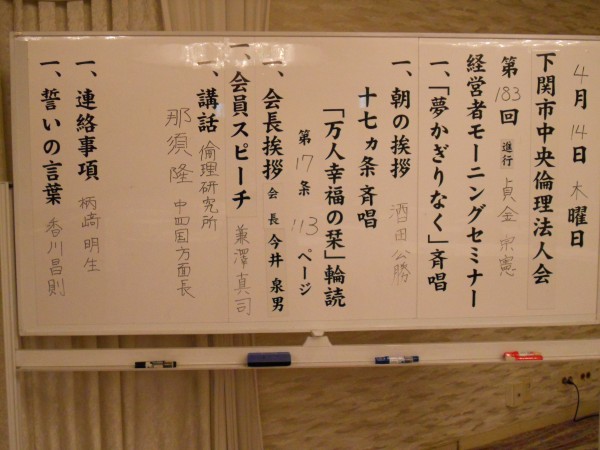 4月14日 木曜日
下関市中央倫理法人会
第183回 進行 貞金 宗憲
経営者モーニングセミナー
一、「夢かぎりなく」斉唱
一、朝の挨拶 酒田 公勝
十七ヵ条斉唱
「万人幸福の栞」輪読
第17条 113ページ
一、会長挨拶 会長 今井 泉男
一、会員スピーチ 兼澤真司
一、講話 倫理研究所
那須 隆 中四国方面長
一、連絡事項 柄崎 明生
一、誓いの言葉 香川昌則